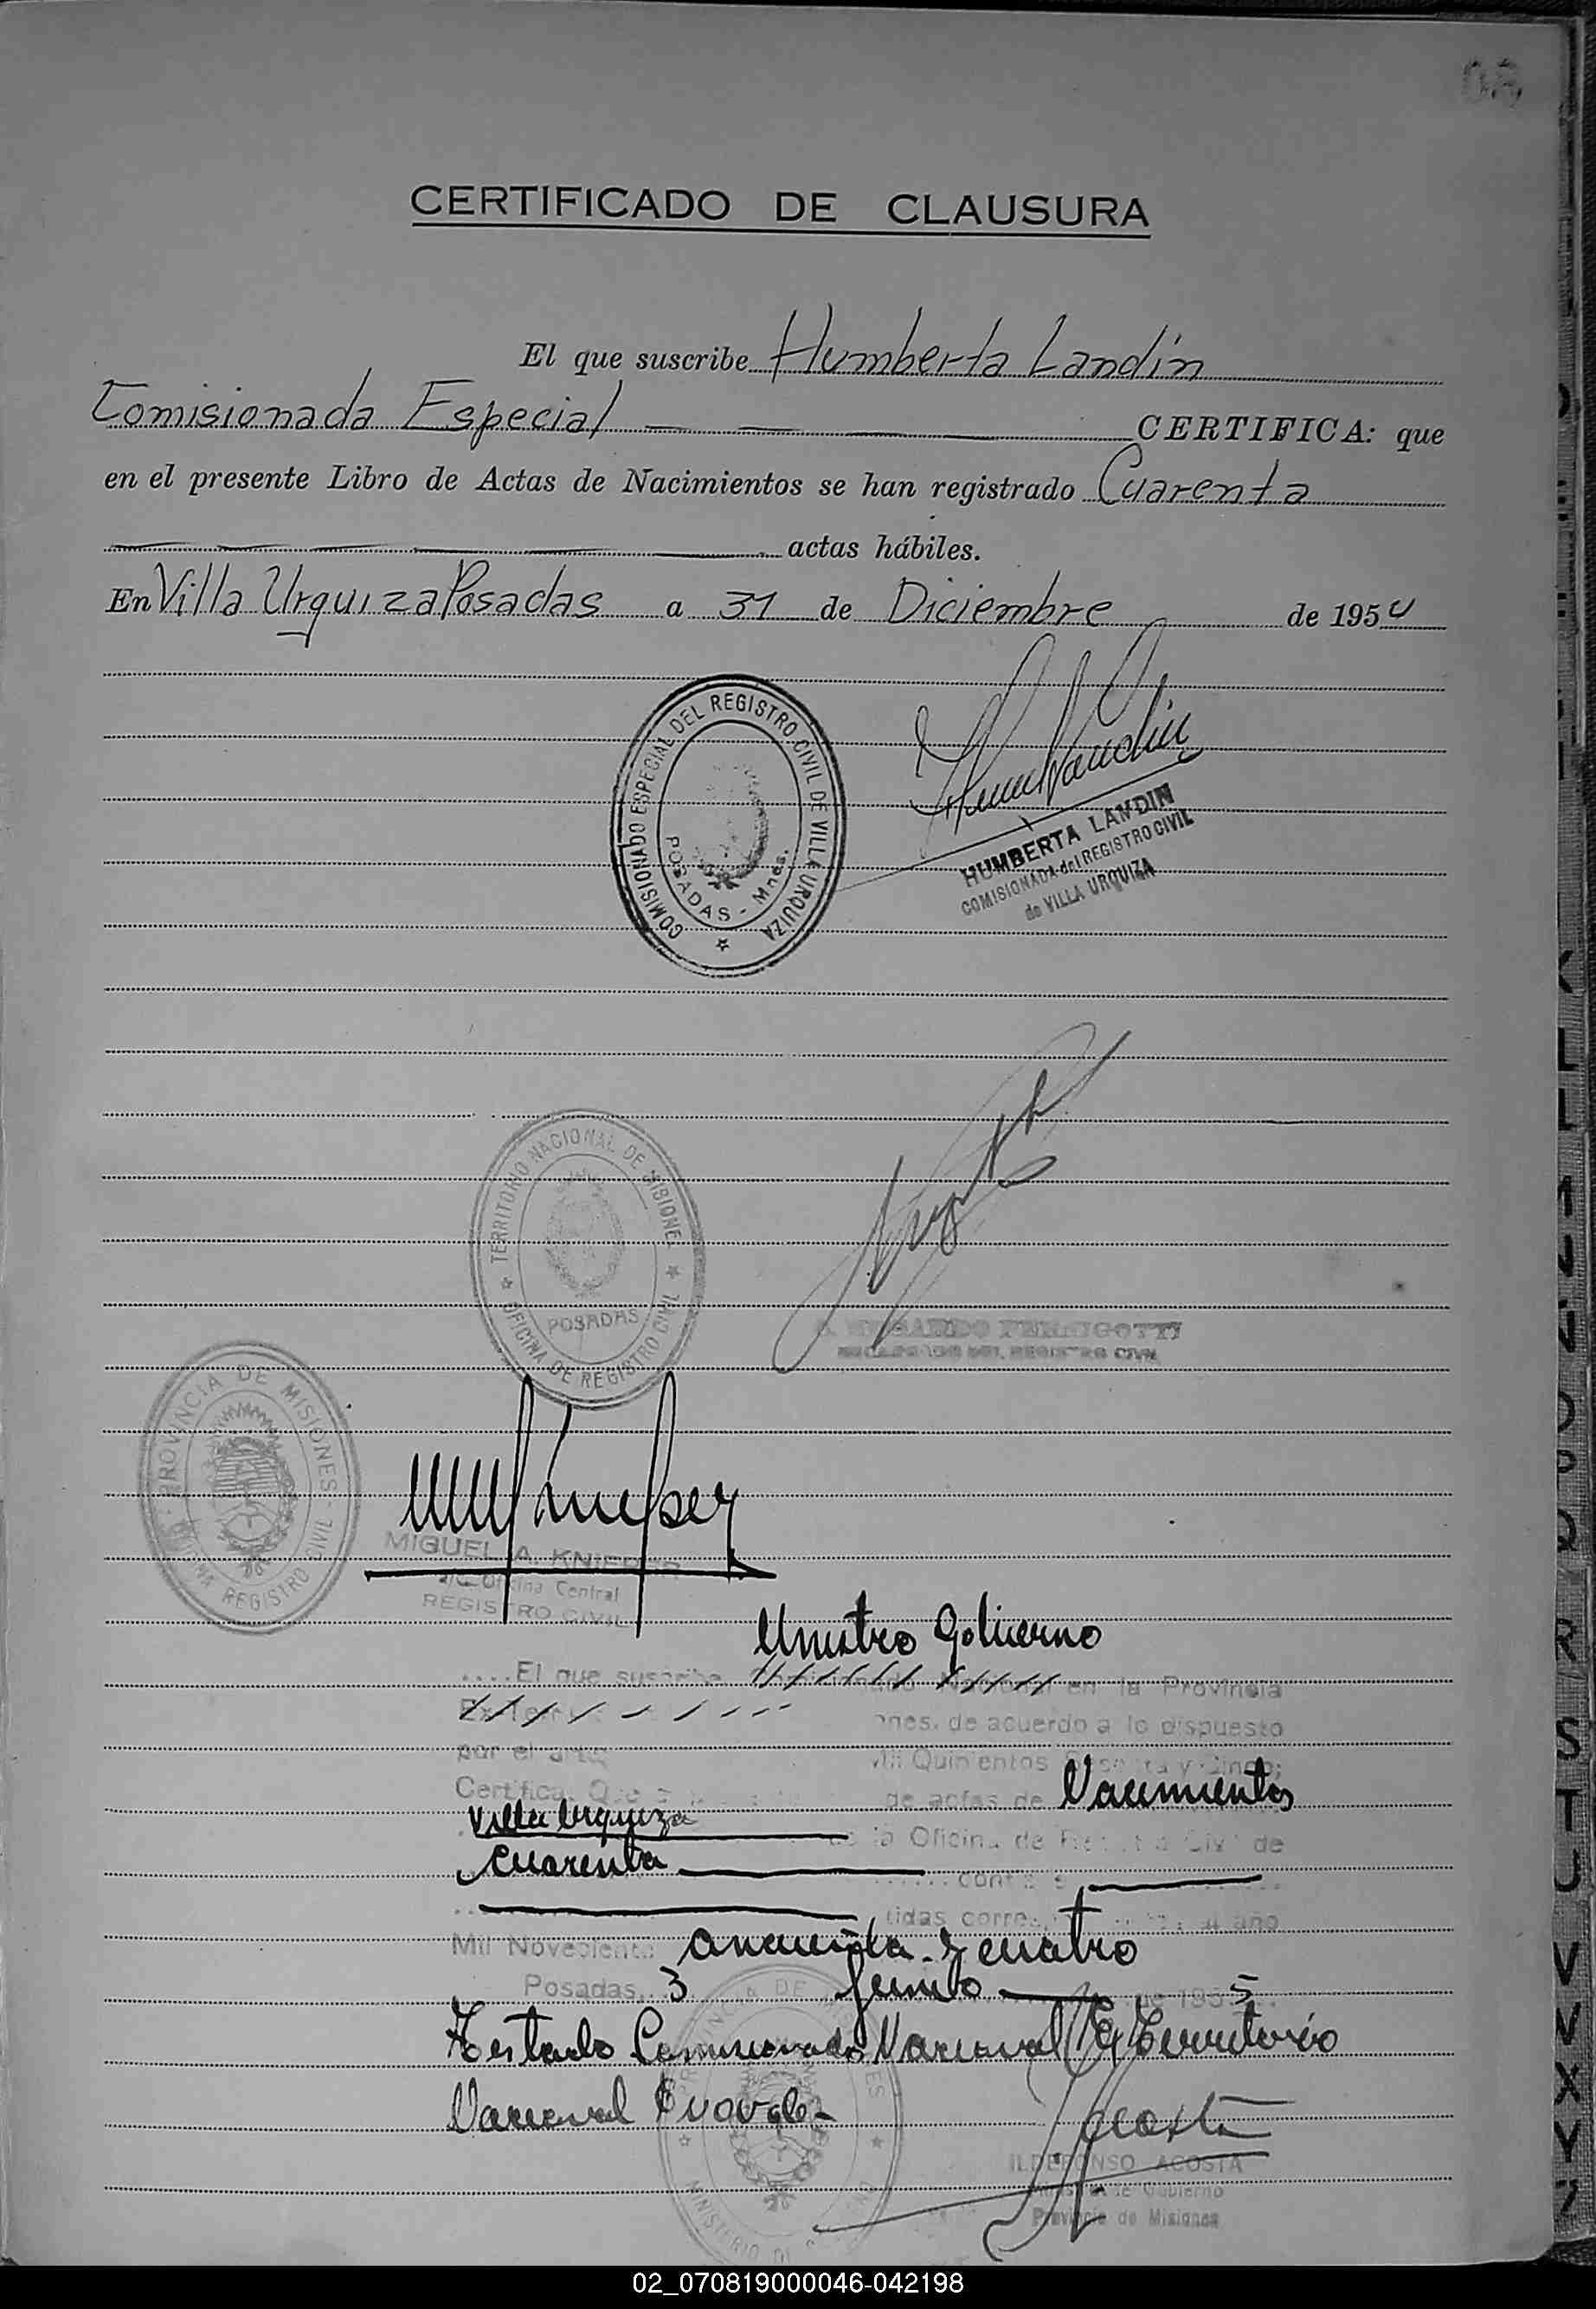 CERTIFICADO DE CLAUSURA
El que suscribe Humberta Landin
Comisionada Especial CERTIFICA: que
en el presente Libro de Actas de Nacimientos se han registrado Cuarenta
actas hábiles.
En Villa Urquiza Posadas a 31 de Diciembre de 1954
COMISIONADO ESPECIAL DEL REGISTRO CIVIL DE VILLA URQUIZA
POSADAS - Mnes.
HUMBERTA LANDIN
COMISIONADA del REGISTRO CIVIL
de VILLA URQUIZA
TERRITORIO NACIONAL DE MISIONES
POSADAS
OFICINA DE REGISTRO CIVIL
DEL REGISTRO CIVIL
PROVINCIA DE MISIONES
OFICINA REGISTRO CIVIL
MIGUEL A. KNIEPER
Oficina Central
REGISTRO CIVIL
Ministro Gobierno
El que suscribe en la Provincia
de acuerdo a lo dispuesto
por el Mil Quinientos Sesenta y Cinco;
Certifica: Que de actas de Nacimientos
Villa Urquiza la Oficina de Registro Civil de
Cuarenta
Mil Novecientos cincuenta y cuatro
Posadas, 3 Junio 1955
Testado Comisionado Nacional Territorio
Nacional
Acosta
ILDEFONSO ACOSTA
Ministro de Gobierno
Provincia de Misiones
02_070819000046-042198